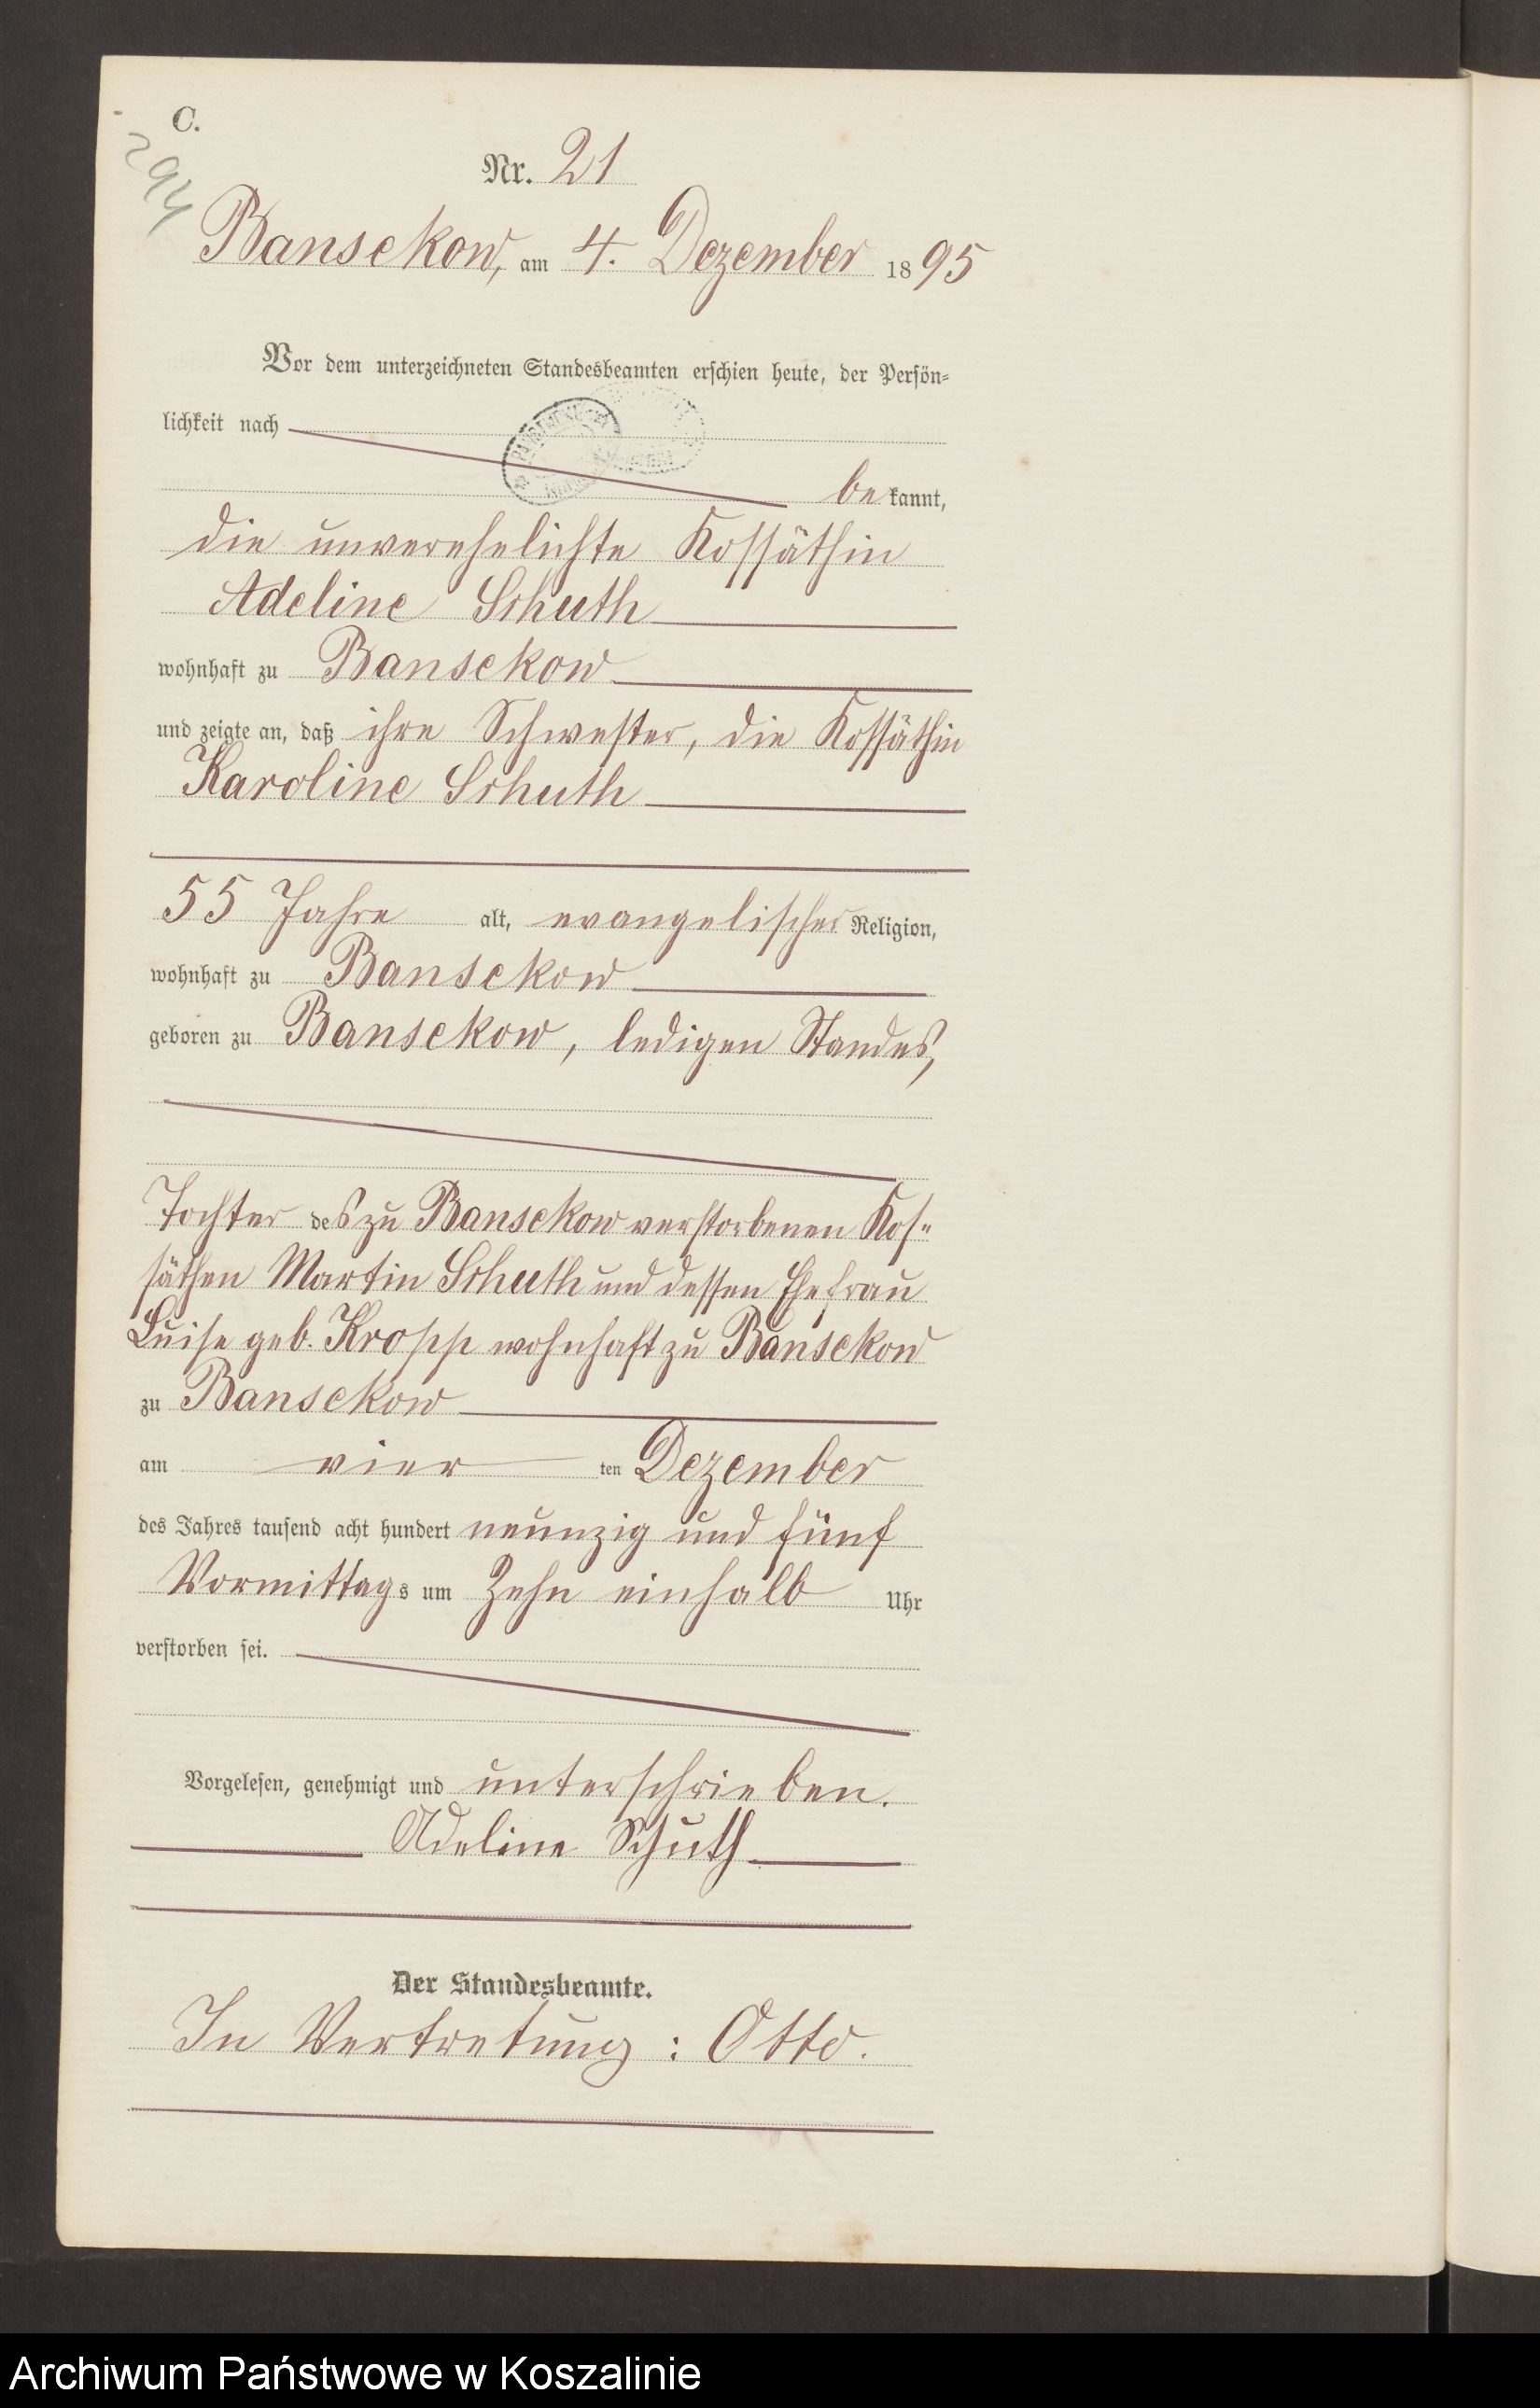 C.
294
Nr. 21
Bansekow, am 4. Dezember 1895
Vor dem unterzeichneten Standesbeamten erschien heute, der Persön-
lichkeit nach
bekannt,
die unverehelichte Kossäthin
Adeline Schuth
wohnhaft zu Bansekow
und zeigte an, daß ihre Schwester, die Kossäthin
Karoline Schuth
55 Jahre alt, evangelischer Religion,
wohnhaft zu Bansekow
geboren zu Bansekow, ledigen Standes,
Tochter des zu Bansekow verstorbenen Kos-
säthen Martin Schuth und dessen Ehefrau
Luise geb. Kropp wohnhaft zu Bansekow
zu Bansekow
am vier ten Dezember
des Jahres tausend acht hundert neunzig und fünf
Vormittags um Zehn einhalb Uhr
verstorben sei.
Vorgelesen, genehmigt und unterschrieben.
Adeline Schuth
Der Standesbeamte.
In Vertretung: Otto.
Archiwum Państwowe w Koszalinie